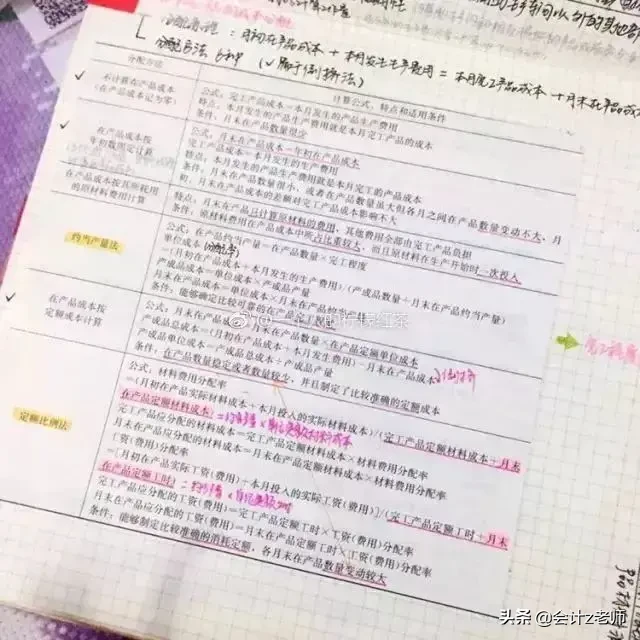 分配方法 6种 (√属于倒挤法)
分配方法
计算公式、特点和适用条件
不计算在产品成本
(在产品成本记为零)
公式:完工产品成本=本月发生的产品生产费用
特点:本月发生的产品生产费用就是本月完工产品的成本
条件:月末在产品数量很少
在产品成本按
年初数固定计算
公式:月末在产品成本=年初在产品成本
完工产品成本=本月发生的生产费用
特点:本月发生的产品生产费用就是本月完工的产品成本
条件:月末在产品数量很小、或者在产品数量虽大但各月之间在产品数量变动不大,月
初、月末在产品成本的差额对完工产品成本影响不大
在产品成本按其所耗用
的原材料费用计算
特点:月末在产品只计算原材料的费用,其他费用全部由完工产品负担
条件:原材料费用在产品成本中所占比重较大,而且原材料在生产开始时一次投入
约当产量法
公式:在产品约当产量=在产品数量×完工程度
单位成本(分配率)
=(月初在产品成本+本月发生的生产费用)/(产成品数量+月末在产品约当产量)
产成品成本=单位成本×产成品产量
月末在产品成本=单位成本×月末在产品约当产量
条件:能够确定比较可靠的在产品
在产品成本按
定额成本计算
公式:月末在产品成本=月末在产品数量×在产品定额单位成本
产成品总成本=(月初在产品成本+本月发生费用)-月末在产品成本 倒挤
产成品单位成本=产成品总成本÷产成品产量
条件:在产品数量稳定或者数量较少,并且制定了比较准确的定额成本
定额比例法
公式:材料费用分配率
=(月初在产品实际材料成本+本月投入的实际材料成本)/(完工产品定额材料成本+月末
在产品定额材料成本)
完工产品应分配的材料成本=完工产品定额材料成本×材料费用分配率
月末在产品应分配的材料成本=月末在产品定额材料成本×材料费用分配率
工资(费用)分配率
=[月初在产品实际工资(费用)+本月投入的实际工资(费用)]/(完工产品定额工时+月末
在产品定额工时)
完工产品应分配的工资(费用)=完工产品定额工时×工资(费用)分配率
月末在产品应分配的工资(费用)=月末在产品定额工时×工资(费用)分配率
条件:能够制定比较准确的消耗定额,各月末在产品数量变动较大
头条 @会计z老师